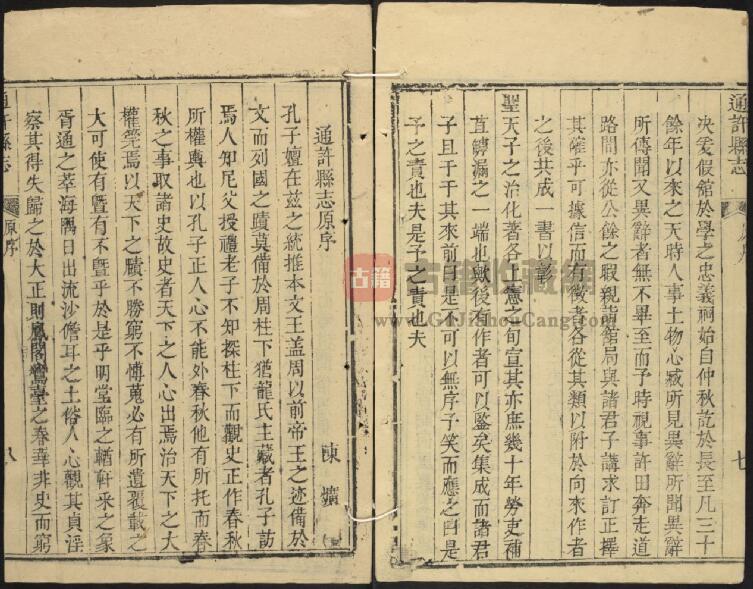 通許縣志
七
決爰假館於學之忠義祠始自仲秋訖於長至凡三十
餘年以來之天時人事土物心臧所見異辭所聞異辭
所傳聞又異辭者無不畢至而予時視事許田奔走道
路間亦從公餘之暇親詣館局與諸君子講求訂正擇
其確乎可據信而有徵者各從其類以附於向來作者
之後共成一書以彰
聖天子之治化著各上憲之旬宣其亦庶幾十年勞吏補
苴罅漏之一端也歟後有作者可以鑒矣集成而諸君
子且于于其來前曰是不可以無序予笑而應之曰是
予之責也夫是予之責也夫
通許縣志原序
陳熿
孔子嬗在兹之統推本文王盖周以前帝王之迹備於
文而列國之蹟莫備於周柱下猶龍氏主藏者孔子訪
焉人知尼父授禮老子不知探柱下而觀史正作春秋
所權輿也以孔子正人心不能外春秋他有所托而春
秋之事取諸史故史者天下之人心出焉治天下之大
權筦焉以天下之賾不勝窮不愽蒐必有所遺覆載之
大可使有曁有不曁乎於是乎明堂臨之輶軒采之象
胥通之萃海隅日出流沙儋耳之土俗人心觀其貞淫
察其得失歸之於大正則鳳閣鸞臺之春華非史而窮
通許縣志
原序
八
古籍收藏網
www.GuJiShouCang.com